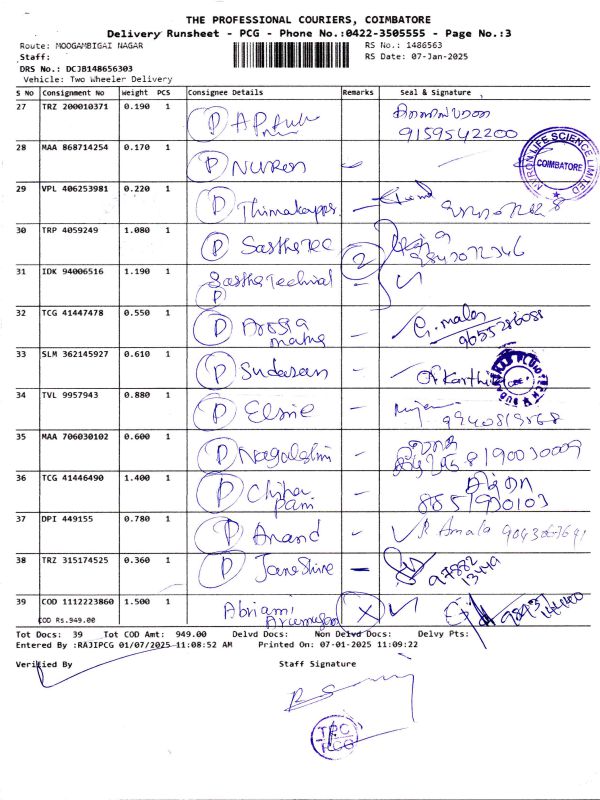 THE PROFESSIONAL COURIERS, COIMBATORE
Delivery Runsheet - PCG - Phone No.:0422-3505555 - Page No.:3
Route: MOOGAMBIGAI NAGAR
RS No.: 1486563
Staff:
RS Date: 07-Jan-2025
DRS No.: DCJB148656303
Vehicle: Two Wheeler Delivery
S No Consignment No Weight PCS Consignee Details Remarks Seal & Signature
27 TRZ 200010371 0.190 1 P
9159542200
28 MAA 868714254 0.170 1 P
LIFE SCIENCE LIMITED
COIMBATORE
29 VPL 406253981 0.220 1 P
30 TRP 4059249 1.080 1 P Sastha Tec 2
31 IDK 94006516 1.190 1 Sastha Technical
P
32 TCG 41447478 0.550 1 P G. mala
9655286088
33 SLM 362145927 0.610 1 P Sudasan
34 TVL 9957943 0.880 1 P Elsie
35 MAA 706030102 0.600 1 P Nagalakshmi 8190030009
36 TCG 41446490 1.400 1 P
37 DPI 449155 0.780 1 P Anand R Amala
38 TRZ 315174525 0.360 1 P Jane Shine
39 COD 1112223860 1.500 1 Abriami X
COD Rs.949.00
Tot Docs: 39 Tot COD Amt: 949.00 Delvd Docs: Non Delvd Docs: Delvy Pts:
Entered By :RAJIPCG 01/07/2025 11:08:52 AM Printed On: 07-01-2025 11:09:22
Verified By Staff Signature
TPC
PCG